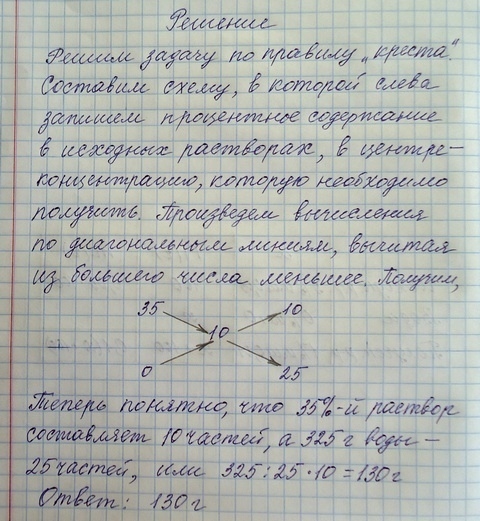 Решение
Решим задачу по правилу „креста“.
Составим схему, в которой слева
запишем процентное содержание
в исходных растворах, в центре –
концентрацию, которую необходимо
получить. Произведем вычисления
по диагональным линиям, вычитая
из большего числа меньшее. Получим,
35 10
10
0 25
Теперь понятно, что 35%-й раствор
составляет 10 частей, а 325 г воды –
25 частей, или 325 : 25 · 10 = 130 г
Ответ: 130 г